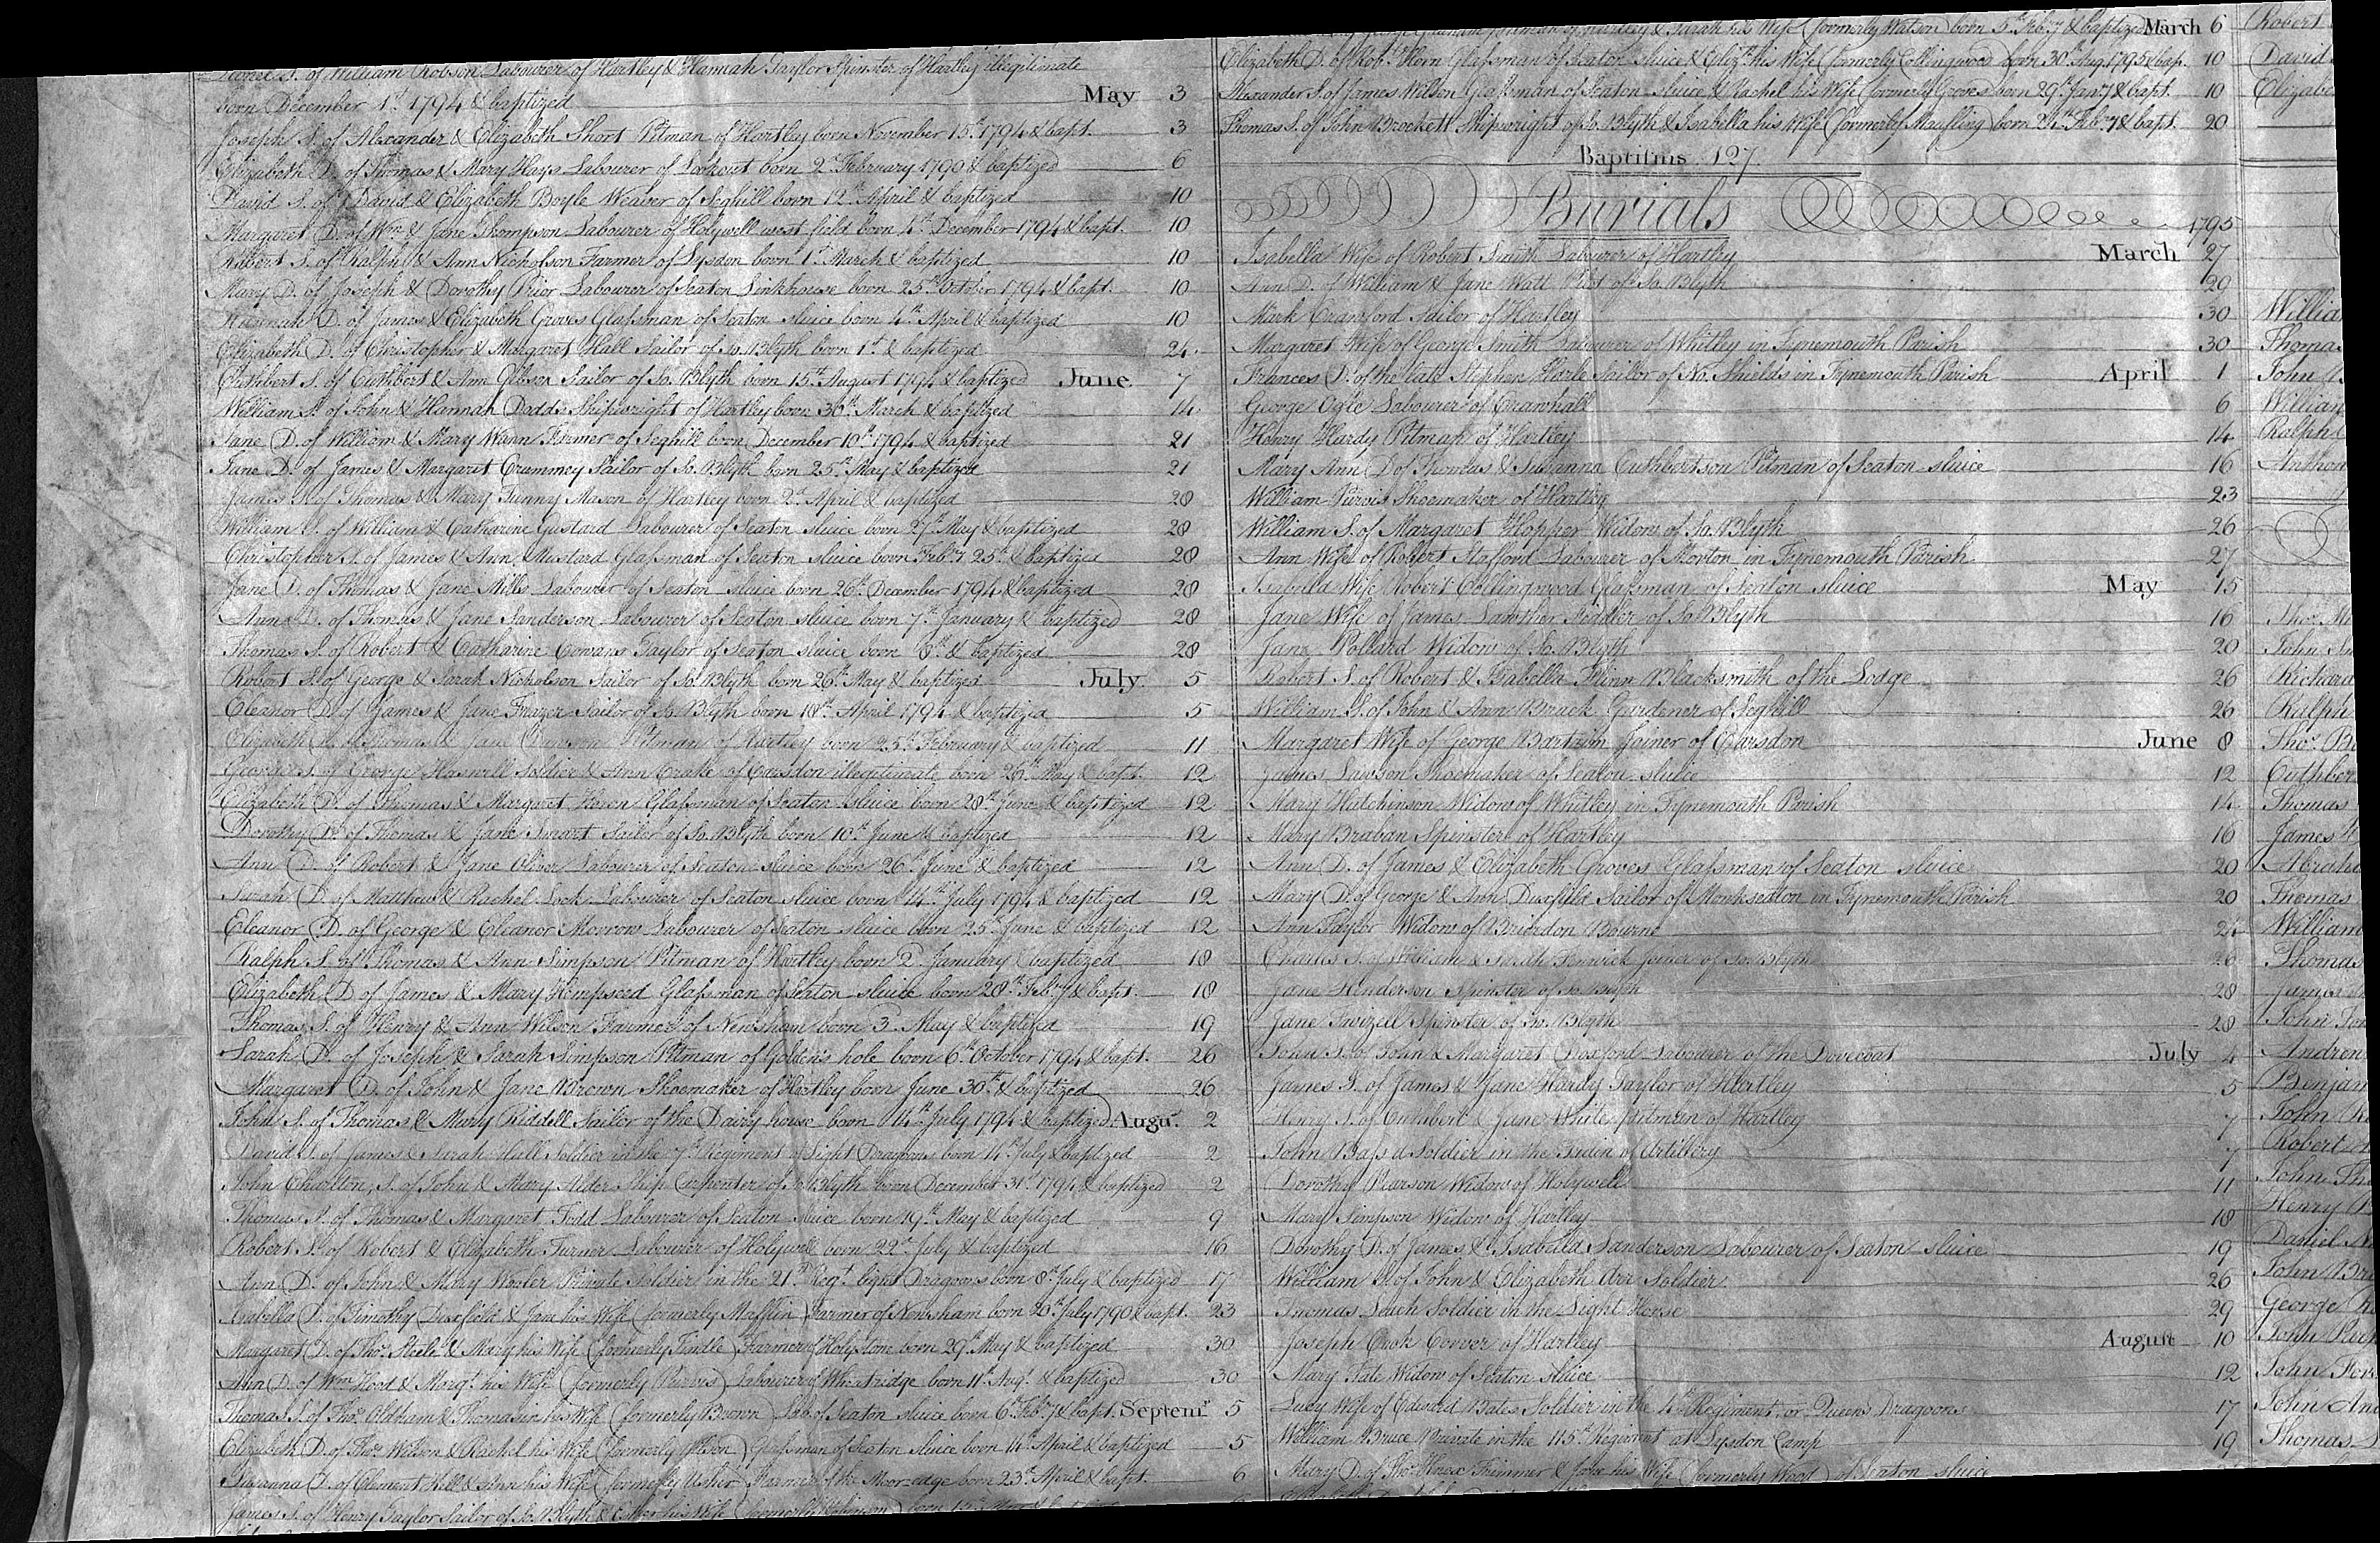 of William Robson Labourer of Hartley & Hannah Taylor Spinster of Hartley illegitimate
born December 1st 1794 & baptized May 3
Joseph S. of Alexander & Elizabeth Short Pitman of Hartley born November 15th 1794 & bapt. 3
Elizabeth D. of Thomas & Mary Hays Labourer of Lookout born 2d February 1790 & baptized 6
David S. of David & Elizabeth Boyle Weaver of Seghill born 12th April & baptized 10
Margaret D. of Wm & Jane Thompson Labourer of Holywell west field born 4th December 1794 & bapt. 10
Robert S. of Ralph & Ann Nicholson Farmer of Lysdon born 1st March & baptized 10
Mary D. of Joseph & Dorothy Prior Labourer of Seaton Linkhouse born 25th October 1794 & bapt. 10
Hannah D. of James & Elizabeth Groves Glassman of Seaton sluice born 4th April & baptized 10
Elizabeth D. of Christopher & Margaret Hall Sailor of So. Blyth born 1st & baptized 24
Cuthbert S. of Cuthbert & Ann Gibson Sailor of So. Blyth born 15th August 1794 & baptized June 7
William S. of John & Hannah Dodds Shipwright of Hartley born 30th March & baptized 14
Jane D. of William & Mary Wann Farmer of Seghill born December 10th 1794 & baptized 21
Jane D. of James & Margaret Crammey Sailor of So. Blyth born 25th May & baptized 21
James S. of Thomas & Mary Funny Mason of Hartley born 2d April & baptized 28
William S. of William & Catharine Gustard Labourer of Seaton sluice born 27th May & baptized 28
Christopher S. of James & Ann Mustard Glassman of Seaton sluice born Febry 25th & baptized 28
Jane D. of Thomas & Jane Mills Labourer of Seaton sluice born 26th December 1794 & baptized 28
Ann D. of Thomas & Jane Sanderson Labourer of Seaton sluice born 7th January & baptized 28
Thomas S. of Robert & Catharine Cowans Taylor of Seaton sluice born 8th & baptized 28
Robert S. of George & Sarah Nicholson Sailor of So. Blyth born 26th May & baptized July 5
Eleanor D. of James & Jane Frazer Sailor of So. Blyth born 18th April 1794 & baptized 5
Elizabeth D. of Thomas & Jane Dawson Pitman of Hartley born 25th February & baptized 11
George S. of George Haswell Soldier & Ann Crake of Earsdon illegitimate born 26th May & bapt. 12
Elizabeth D. of Thomas & Margaret Heron Glassman of Seaton sluice born 28th June & baptized 12
Dorothy D. of Thomas & Jane Smart Sailor of So. Blyth born 10th June & baptized 12
Ann D. of Robert & Jane Oliver Labourer of Seaton sluice born 26th June & baptized 12
Sarah D. of Matthew & Rachel Lock Labourer of Seaton sluice born 14th July 1794 & baptized 12
Eleanor D. of George & Eleanor Morrow Labourer of Seaton sluice born 25th June & baptized 12
Ralph S. of Thomas & Ann Simpson Pitman of Hartley born 2 January & baptized 18
Elizabeth D. of James & Mary Hempseed Glassman of Seaton sluice born 28th Febry & bapt. 18
Thomas S. of Henry & Ann Wilson Farmer of Newsham born 3 May & baptized 19
Sarah D. of Joseph & Sarah Simpson Pitman of Golden's hole born 6th October 1794 & bapt. 26
Margaret D. of John & Jane Brown Shoemaker of Hartley born June 30th & baptized 26
John S. of Thomas & Mary Riddell Sailor of the Dairy house born 14th July 1794 & baptized Augst 2
David S. of James & Sarah Hall Soldier in the 7th Regiment of Light Dragoons born 14th July & baptized 2
John Charlton, S. of John & Mary Alder Ship Carpenter of So. Blyth born December 31st 1794 & baptized 2
Thomas S. of Thomas & Margaret Todd Labourer of Seaton sluice born 19th May & baptized 9
Robert S. of Robert & Elizabeth Turner Labourer of Holywell born 22d July & baptized 16
Ann D. of John & Mary Wooler Private Soldier in the 21st Regt. light Dragoons born 8th July & baptized 17
Arabella D. of Timothy Duxfield & Jane his Wife (formerly Mafflin) Farmer of Newsham born 20th July 1790 & bapt. 23
Margaret D. of Thos. Steele & Mary his Wife (formerly Tindle) Farmer of Holystone born 29th May & baptized 30
Ann D. of Wm Hood & Margt. his Wife (formerly Purvis) Labourer of Wheatridge born 11th Aug. & baptized 30
Thomas S. of Thos. Oldham & Thomasin his Wife (formerly Brown) Lab. of Seaton sluice born 6th Febry & bapt. Septemr 5
Elizabeth D. of Thos. Wilson & Rachel his Wife (formerly Gibson) Glassman of Seaton sluice born 14th April & baptized 5
Susanna D. of Clement Hall & Ann his Wife (formerly Usher) Farmer of the Moor-edge born 23d April & bapt. 6
James S. of Henry Taylor Sailor of So. Blyth & Esther his Wife (formerly Robinson) born
of Hartley & Sarah his Wife (formerly Watson) born 5th Febry & baptized March 6
Elizabeth D. of Robt. Horn Glassman of Seaton sluice & Elizth. his Wife (formerly Collingwood) born 30th Aug. 1795 & bap. 10
Alexander S. of James Wilson Glassman of Seaton sluice & Rachel his Wife (formerly Groves) born 29th Jany & bapt. 10
Thomas S. of John Brockett Shipwright of So. Blyth & Isabella his Wife (formerly Maufling) born 24th Febry & bapt. 20
Baptisms 127
Burials
1795
Isabella Wife of Robert Smith Labourer of Hartley March 27
Ann D. of William & Jane Watt Pilot of So. Blyth 29
Mark Crawford Sailor of Hartley 30
Margaret Wife of George Smith Labourer of Whitley in Tynemouth Parish 30
Frances D. of the late Stephen Harle Sailor of No. Shields in Tynemouth Parish April 1
George Ogle Labourer of Cramhall 6
Henry Hardy Pitman of Hartley 14
Mary Ann D. of Thomas & Susanna Cuthbertson Pitman of Seaton sluice 16
William Purvis Shoemaker of Hartley 23
William S. of Margaret Hopper Widow of So. Blyth 26
Ann Wife of Robert Stafford Labourer of Morton in Tynemouth Parish 27
Isabella Wife Robert Collingwood Glassman of Seaton sluice May 15
Jane Wife of James Lawther Pedder of So. Blyth 16
Jane Pollard Widow of So. Blyth 20
Robert S. of Robert & Isabella Flinn Blacksmith of the Lodge 26
William S. of John & Ann Brack Gardener of Seghill 26
Margaret Wife of George Bartrim Joiner of Earsdon June 8
James Lawson Shoemaker of Seaton sluice 12
Mary Hutchinson Widow of Whitley in Tynemouth Parish 14
Mary Braban Spinster of Hartley 16
Ann D. of James & Elizabeth Groves Glassman of Seaton sluice 20
Mary D. of George & Ann Duxfield Sailor of Monkseaton in Tynemouth Parish 20
Ann Taylor Widow of Brierdon Bourne 24
Charles S. of William & Sarah Fenwick Joiner of So. Blyth 26
Jane Henderson Spinster of So. Blyth 28
Jane Swizell Spinster of So. Blyth 28
John S. of John & Margaret Doxford Labourer of the Dovecoat July 4
James S. of James & Jane Hardy Taylor of Hartley 5
Henry S. of Cuthbert & Jane White Pitman of Hartley 7
John Bass a Soldier in the Train of Artillery 7
Dorothy Pearson Widow of Holywell 11
Mary Simpson Widow of Hartley 18
Dorothy D. of James & Isabella Sanderson Labourer of Seaton sluice 19
William S. of John & Elizabeth Orr Soldier 26
Thomas Leach Soldier in the Light Horse 29
Joseph Cook Corver of Hartley August 10
Mary Tate Widow of Seaton sluice 12
Lucy Wife of Edward Bates Soldier in the 4th Regiment or Queens Dragoons 17
William Bruce Private in the 115th Regiment at Lysdon Camp 19
Mary D. of Thos. Knox Trimmer & Jane his Wife (formerly Wood) of Seaton sluice
Robert
David
Elizabe
Willia
Thomas
John
William
Ralph
Anthon
Thos.
John
Richard
Ralph
Thos.
Cuthber
Thomas
James
Abraha
Thomas
William
Thomas
James
John
Andrew
Benjam
John
Robert
John
Henry
Daniel
John
George
John
John
John
Thomas